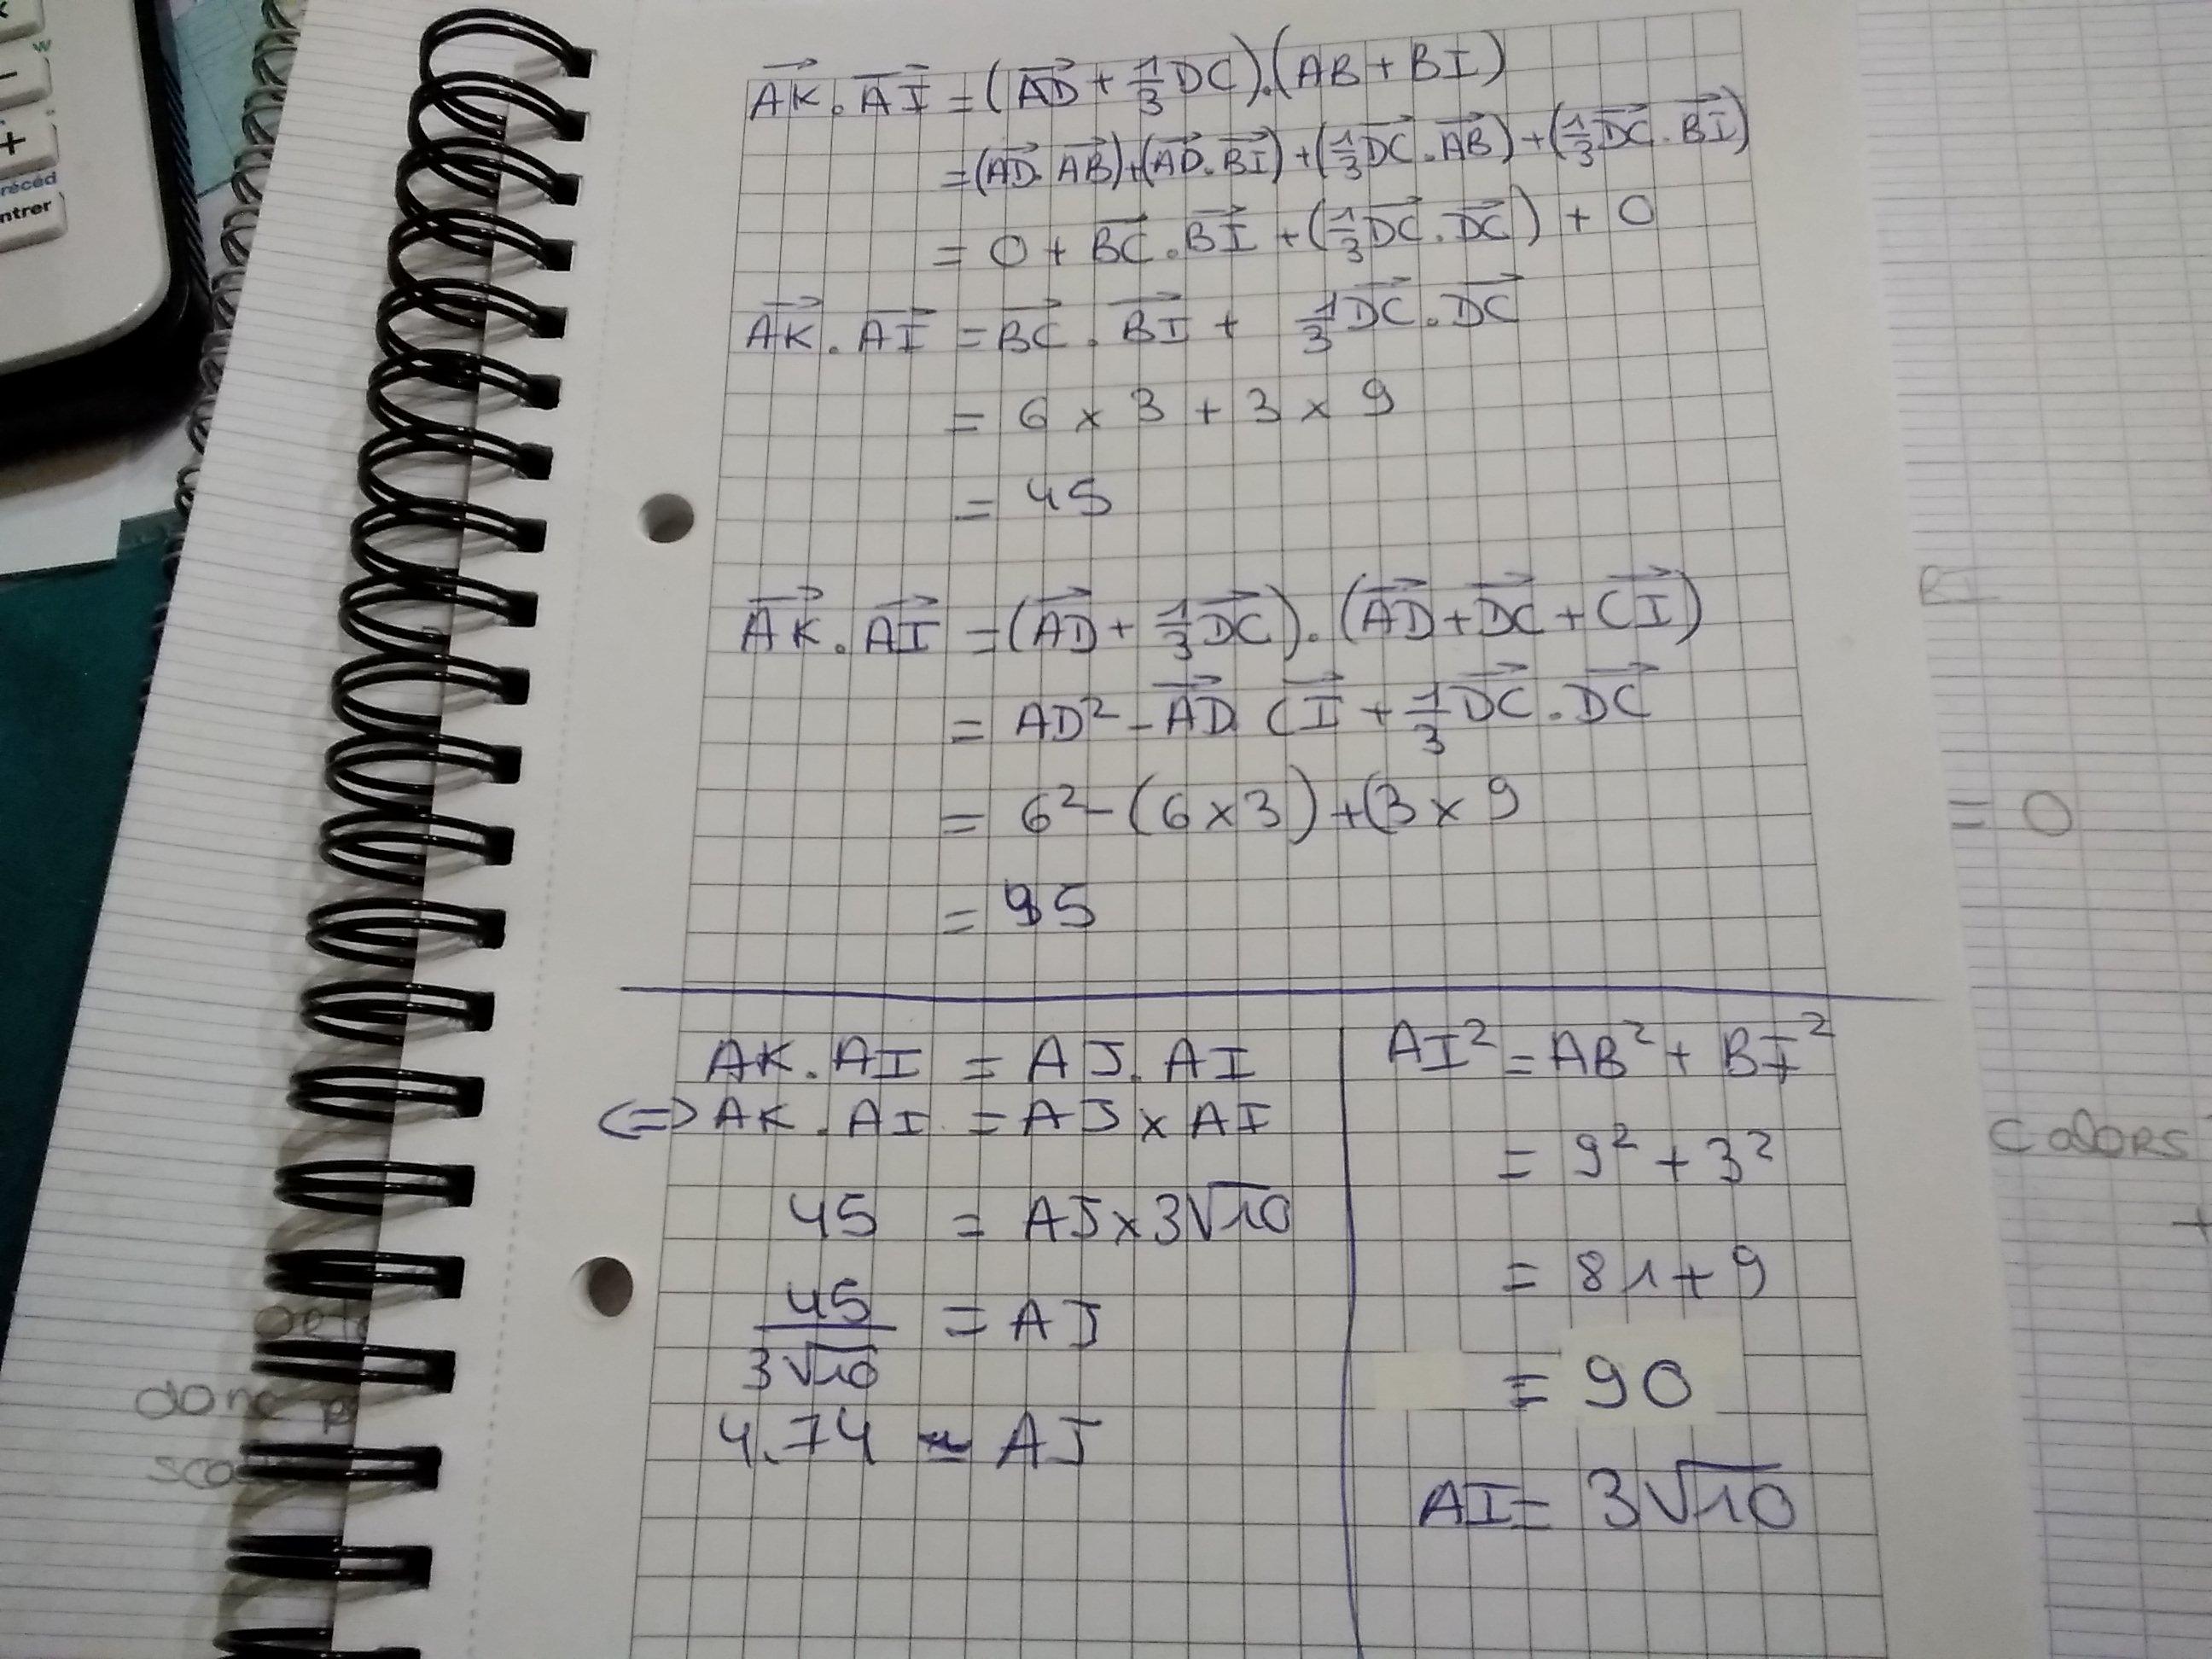 w
+
récéd
ntrer
AK . AI = (AD + 1/3 DC).(AB + BI)
= (AD. AB)+(AD.BI) + (1/3 DC . AB) + (1/3 DC . BI)
= 0 + BC . BI + (1/3 DC . DC) + 0
AK . AI = BC . BI + 1/3 DC . DC
= 6 x 3 + 3 x 9
= 45
AK . AI = (AD + 1/3 DC). (AD + DC + CI)
= AD² - AD. CI + 1/3 DC . DC
= 6² - (6 x 3) + (3 x 9
= 45
AK . AI = AJ . AI
<=> AK . AI = AJ x AI
45 = AJ x 3√10
45/3√10 = AJ
4.74 ≈ AJ
AI² = AB² + BI²
= 9² + 3²
= 81 + 9
= 90
AI = 3√10
BI
= 0
calors
+
donc